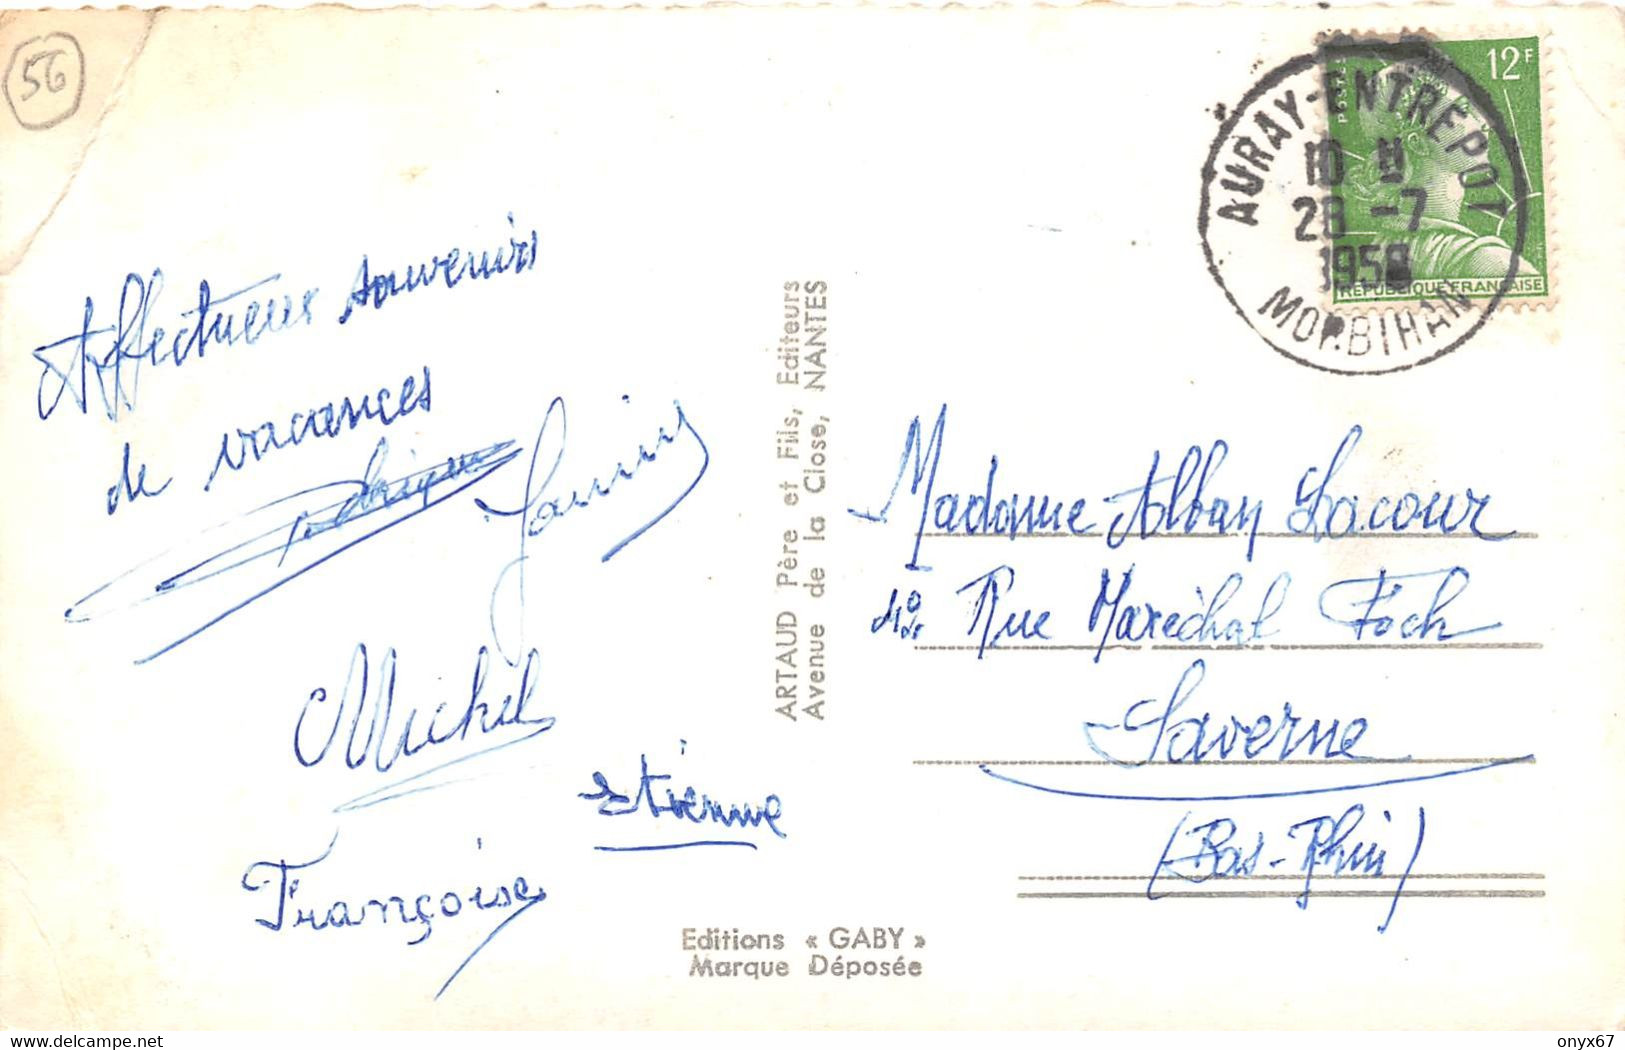 56
Affectueux souvenirs
de vacances
Michel
Etienne
Françoise
ARTAUD Père et Fils, Editeurs
Avenue de la Close, NANTES
Editions « GABY »
Marque Déposée
POSTES
12F
REPUBLIQUE FRANÇAISE
AURAY-ENTREPOT
28 -7
MORBIHAN
Madame Alban Lacour
Rue Maréchal Foch
Saverne
(Bas-Rhin)
delcampe.net
onyx67